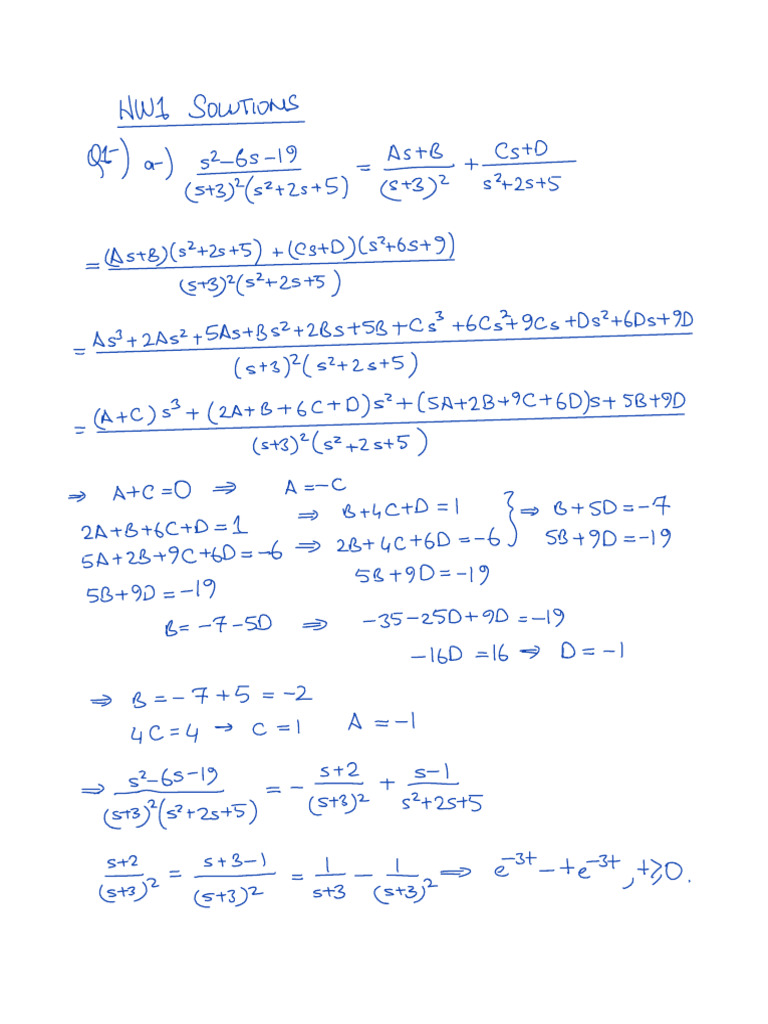 HW1 SOLUTIONS
Q1-) a-) (s²-6s-19)/((s+3)²(s²+2s+5)) = (As+B)/(s+3)² + (Cs+D)/(s²+2s+5)
= ((As+B)(s²+2s+5) + (Cs+D)(s²+6s+9))/((s+3)²(s²+2s+5))
= (As³+2As²+5As+Bs²+2Bs+5B+Cs³+6Cs²+9Cs+Ds²+6Ds+9D)/((s+3)²(s²+2s+5))
= ((A+C)s³+(2A+B+6C+D)s²+(5A+2B+9C+6D)s+5B+9D)/((s+3)²(s²+2s+5))
⇒ A+C=0 ⇒ A=-C
2A+B+6C+D=1 ⇒ B+4C+D=1 } ⇒ B+5D=-7
5A+2B+9C+6D=-6 ⇒ 2B+4C+6D=-6 } 5B+9D=-19
5B+9D=-19 5B+9D=-19
B=-7-5D ⇒ -35-25D+9D=-19
-16D=16 ⇒ D=-1
⇒ B=-7+5=-2
4C=4 → C=1 A=-1
⇒ (s²-6s-19)/((s+3)²(s²+2s+5)) = - (s+2)/(s+3)² + (s-1)/(s²+2s+5)
(s+2)/(s+3)² = (s+3-1)/(s+3)² = 1/(s+3) - 1/(s+3)² ⇒ e^(-3t) - te^(-3t), t≥0.